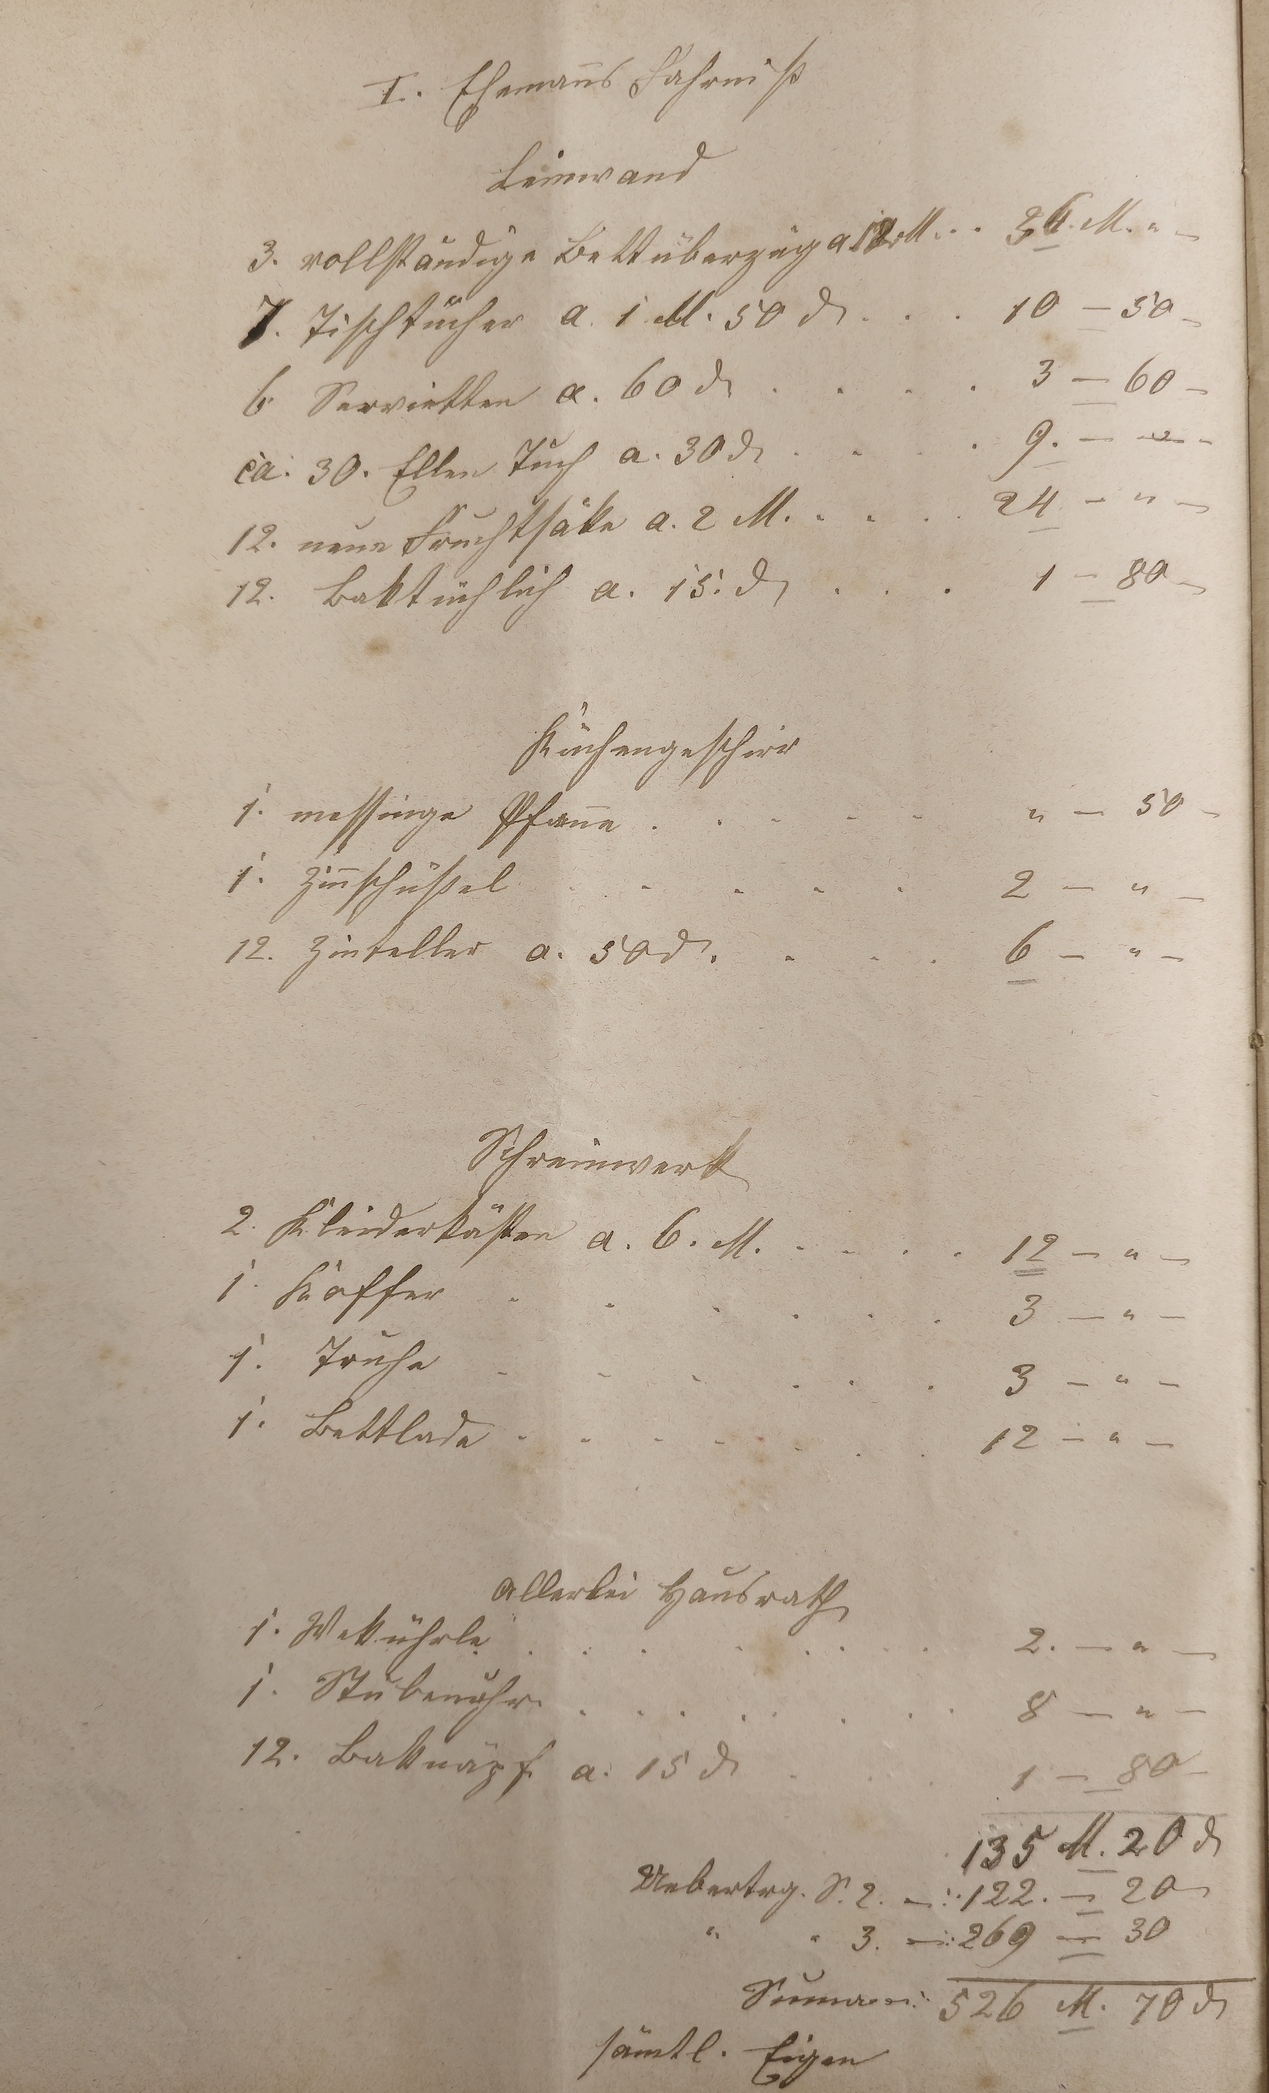 I. Ehemanns Fahrniß
Leinwand
3. vollständige Bettüberzüg a 12 M. . . 36 M. " –
7. Tischtücher a. 1 M. 50 ₰ . . . 10 – 50 –
6 Servietten a. 60 ₰ . . . . 3 – 60 –
ca. 30. Ellen Tuch a. 30 ₰ . . . . 9. – " –
12. neue Fruchtsäke a. 2 M. . . . 24 – " –
12. Baktüchlich a. 15. ₰ . . . 1 – 80 –
Küchengeschirr
1. messinge Pfanne . . . . . " – 50 –
1. Zinnschüßel . . . . . 2 – " –
12. Zinteller a. 50 ₰. . . . 6 – " –
Schreinwerk
2. Kleiderkästen a. 6. M. . . . . 12 – " –
1. Koffer . . . . . . 3 – " –
1. Truhe . . . . . . 3 – " –
1. Bettlade . . . . . . . 12 – " –
Allerlei Hausrath
1. Wekührle . . . . . . . . 2. – " –
1. Stubenuhr . . . . . . . . 8 – " –
12. Baknäpf. a. 15 ₰ . . . 1 – 80 –
135 M. 20 ₰
Uebertrg. S. 2. –:. 122. – 20 –
" " 3. –:. 269 – 30
Summa –:. 526 M. 70 ₰
sämtl. Eigen